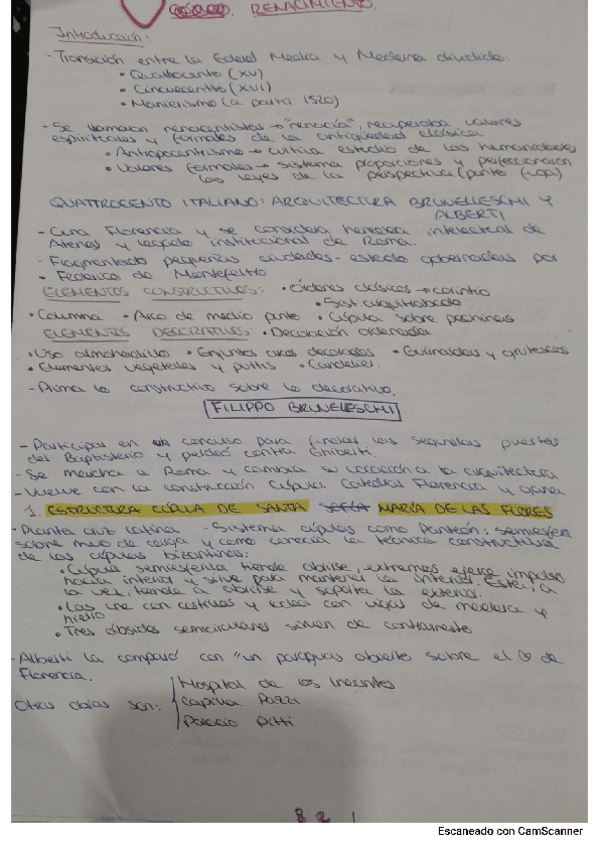 RENACIMIENTO.
Introducción:
- Transición entre la Edad Media y Moderna dividida:
• Quattrocento (XV)
• Cincuecentto (XVI)
• Manierismo (a partir 1520)
- Se llamaron renacentistas → "renacía", recuperaba valores
espirituales y formales de la antigüedad clásica
• Antropocentrismo → cultiva estudio de las humanidades
• Valores formales → sistema proporciones y perfeccionaron
las leyes de la perspectiva (punto fuga)
QUATTROCENTO ITALIANO: ARQUITECTURA BRUNELLESCHI Y
ALBERTI
- Cuna Florencia y se considera heredera intelectual de
Atenas y legado institucional de Roma.
- Fragmentado pequeñas ciudades - estado gobernadas por
- Federico de Montefeltro
ELEMENTOS CONSTRUCTIVOS: • Órdenes clásicos → corintio
• Sist. arquitrabado
• Columna • Arco de medio punto • Cúpula sobre pechinas
ELEMENTOS DECORATIVOS: • Decoración ordenada
• Uso almohadillo • Enjutas arcos decorados • Guirnaldas y grutescos
• Elementos vegetales y puttis • Candelieri
- Prima lo constructivo sobre lo decorativo.
FILIPPO BRUNELLESCHI
- Participa en un concurso para las segundas puertas
del Baptisterio y perdió contra Ghiberti.
- Se marcha a Roma y cambia su vocación a la arquitectura
- Vuelve con la construcción Cúpula Catedral Florencia y gana
1. ESTRUCTURA CÚPULA DE SANTA SOFÍA MARÍA DE LAS FLORES
- Planta cruz latina - Sistema cúpulas como Panteón: semiesfera
sobre muro de carga y como conocía la técnica constructiva
de las cúpulas bizantinas:
• Cúpula semiesférica tiende abrirse, extremos ejerce impulso
hacia interior y sirve para mantener la interior. Esta, a
la vez, tiende a abrirse y sujeta la exterior.
• Las une con costillas y rodea con vigas de madera y
hierro
• Tres ábsides semicirculares sirven de contrarresto
- Alberti la comparó con "un paraguas abierto sobre el de
Florencia.
Otras obras son:
Hospital de los Inocentes
Capilla Pazzi
Palacio Pitti
Escaneado con CamScanner